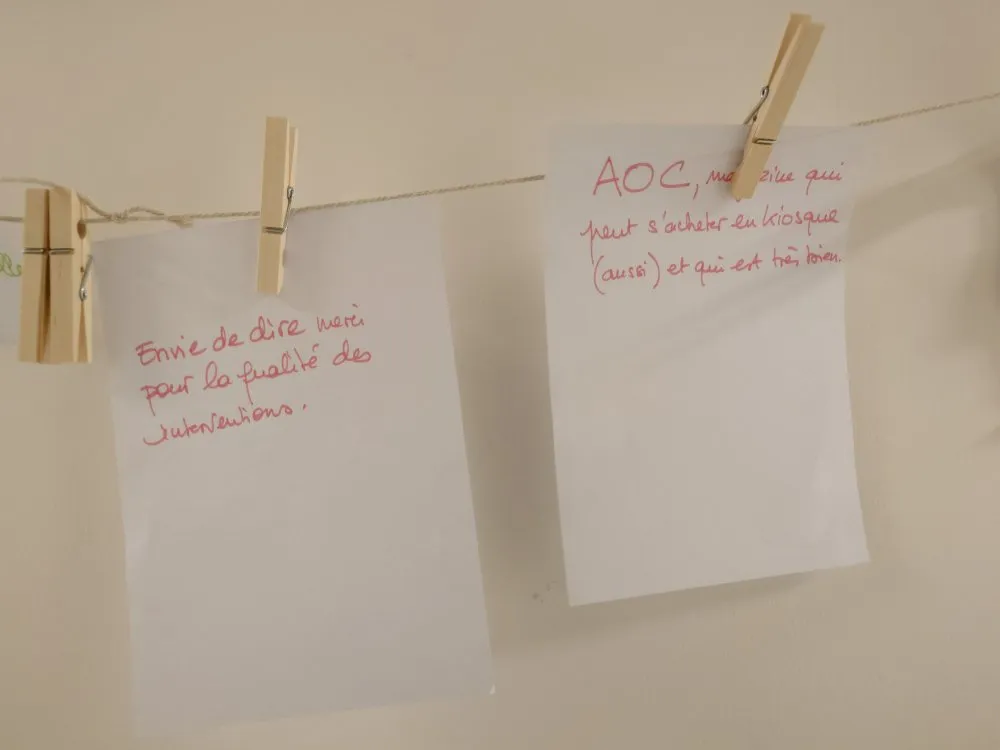 Envie de dire merci
pour la qualité des
interventions.
AOC, qui
peut s'acheter en kiosque
(aussi) et qui est très bien.